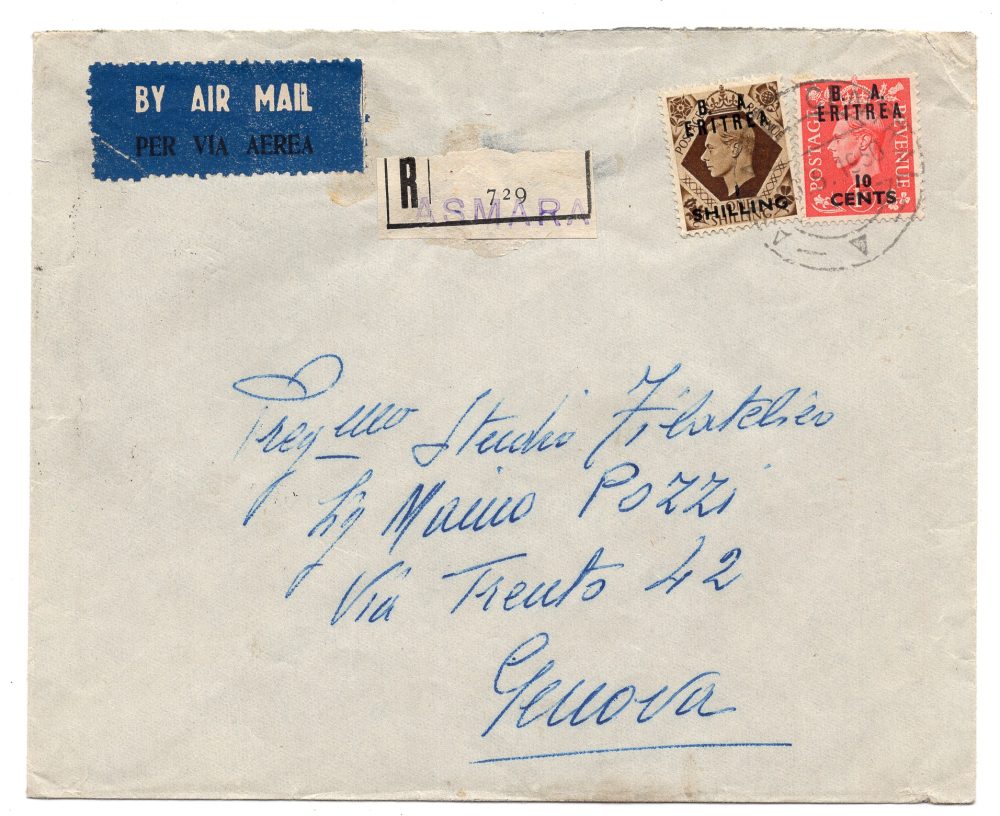 BY AIR MAIL
PER VIA AEREA
R 729
ASMARA
B. A.
ERITREA
1
SHILLING
B. A.
ERITREA
POSTAGE
REVENUE
10
CENTS
Studio Filatelico
Sig Pozzi
Via Trento 42
Genova